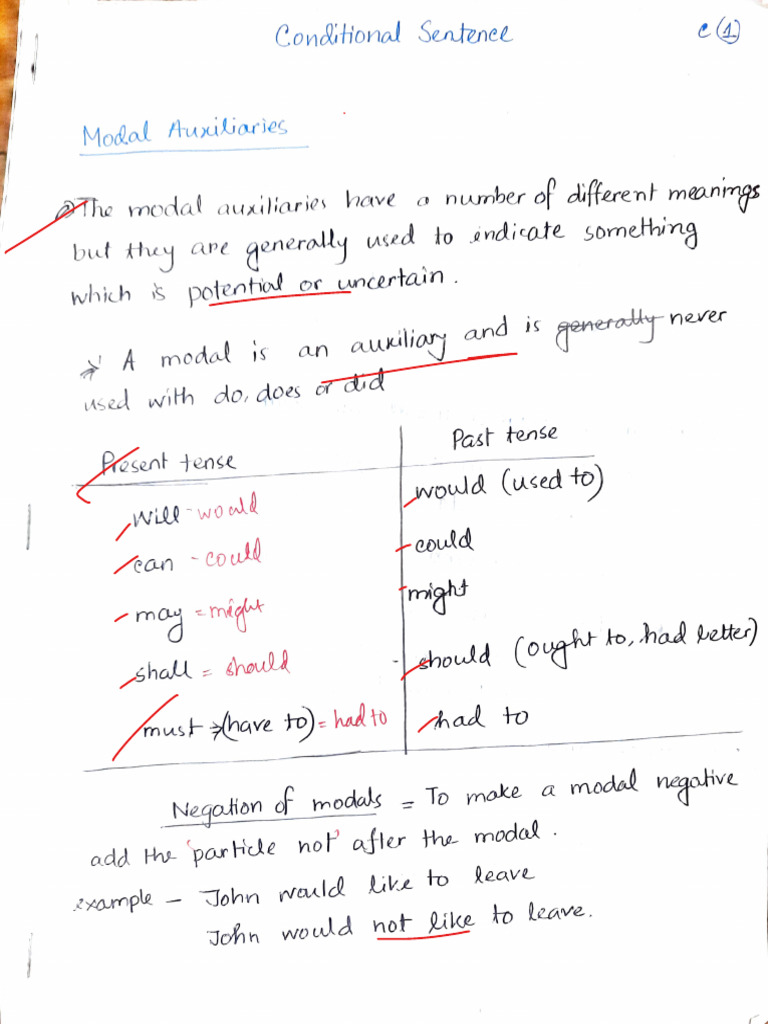 Conditional Sentence
c(1)
Modal Auxiliaries
The modal auxiliaries have a number of different meanings
but they are generally used to indicate something
which is potential or uncertain.
A modal is an auxiliary and is generally never
used with do, does or did
Present tense
Past tense
will - would
would (used to)
can - could
could
may = might
might
shall = should
should (ought to, had better)
must → (have to) = had to
had to
Negation of modals = To make a modal negative
add the 'particle not' after the modal.
example - John would like to leave
John would not like to leave.